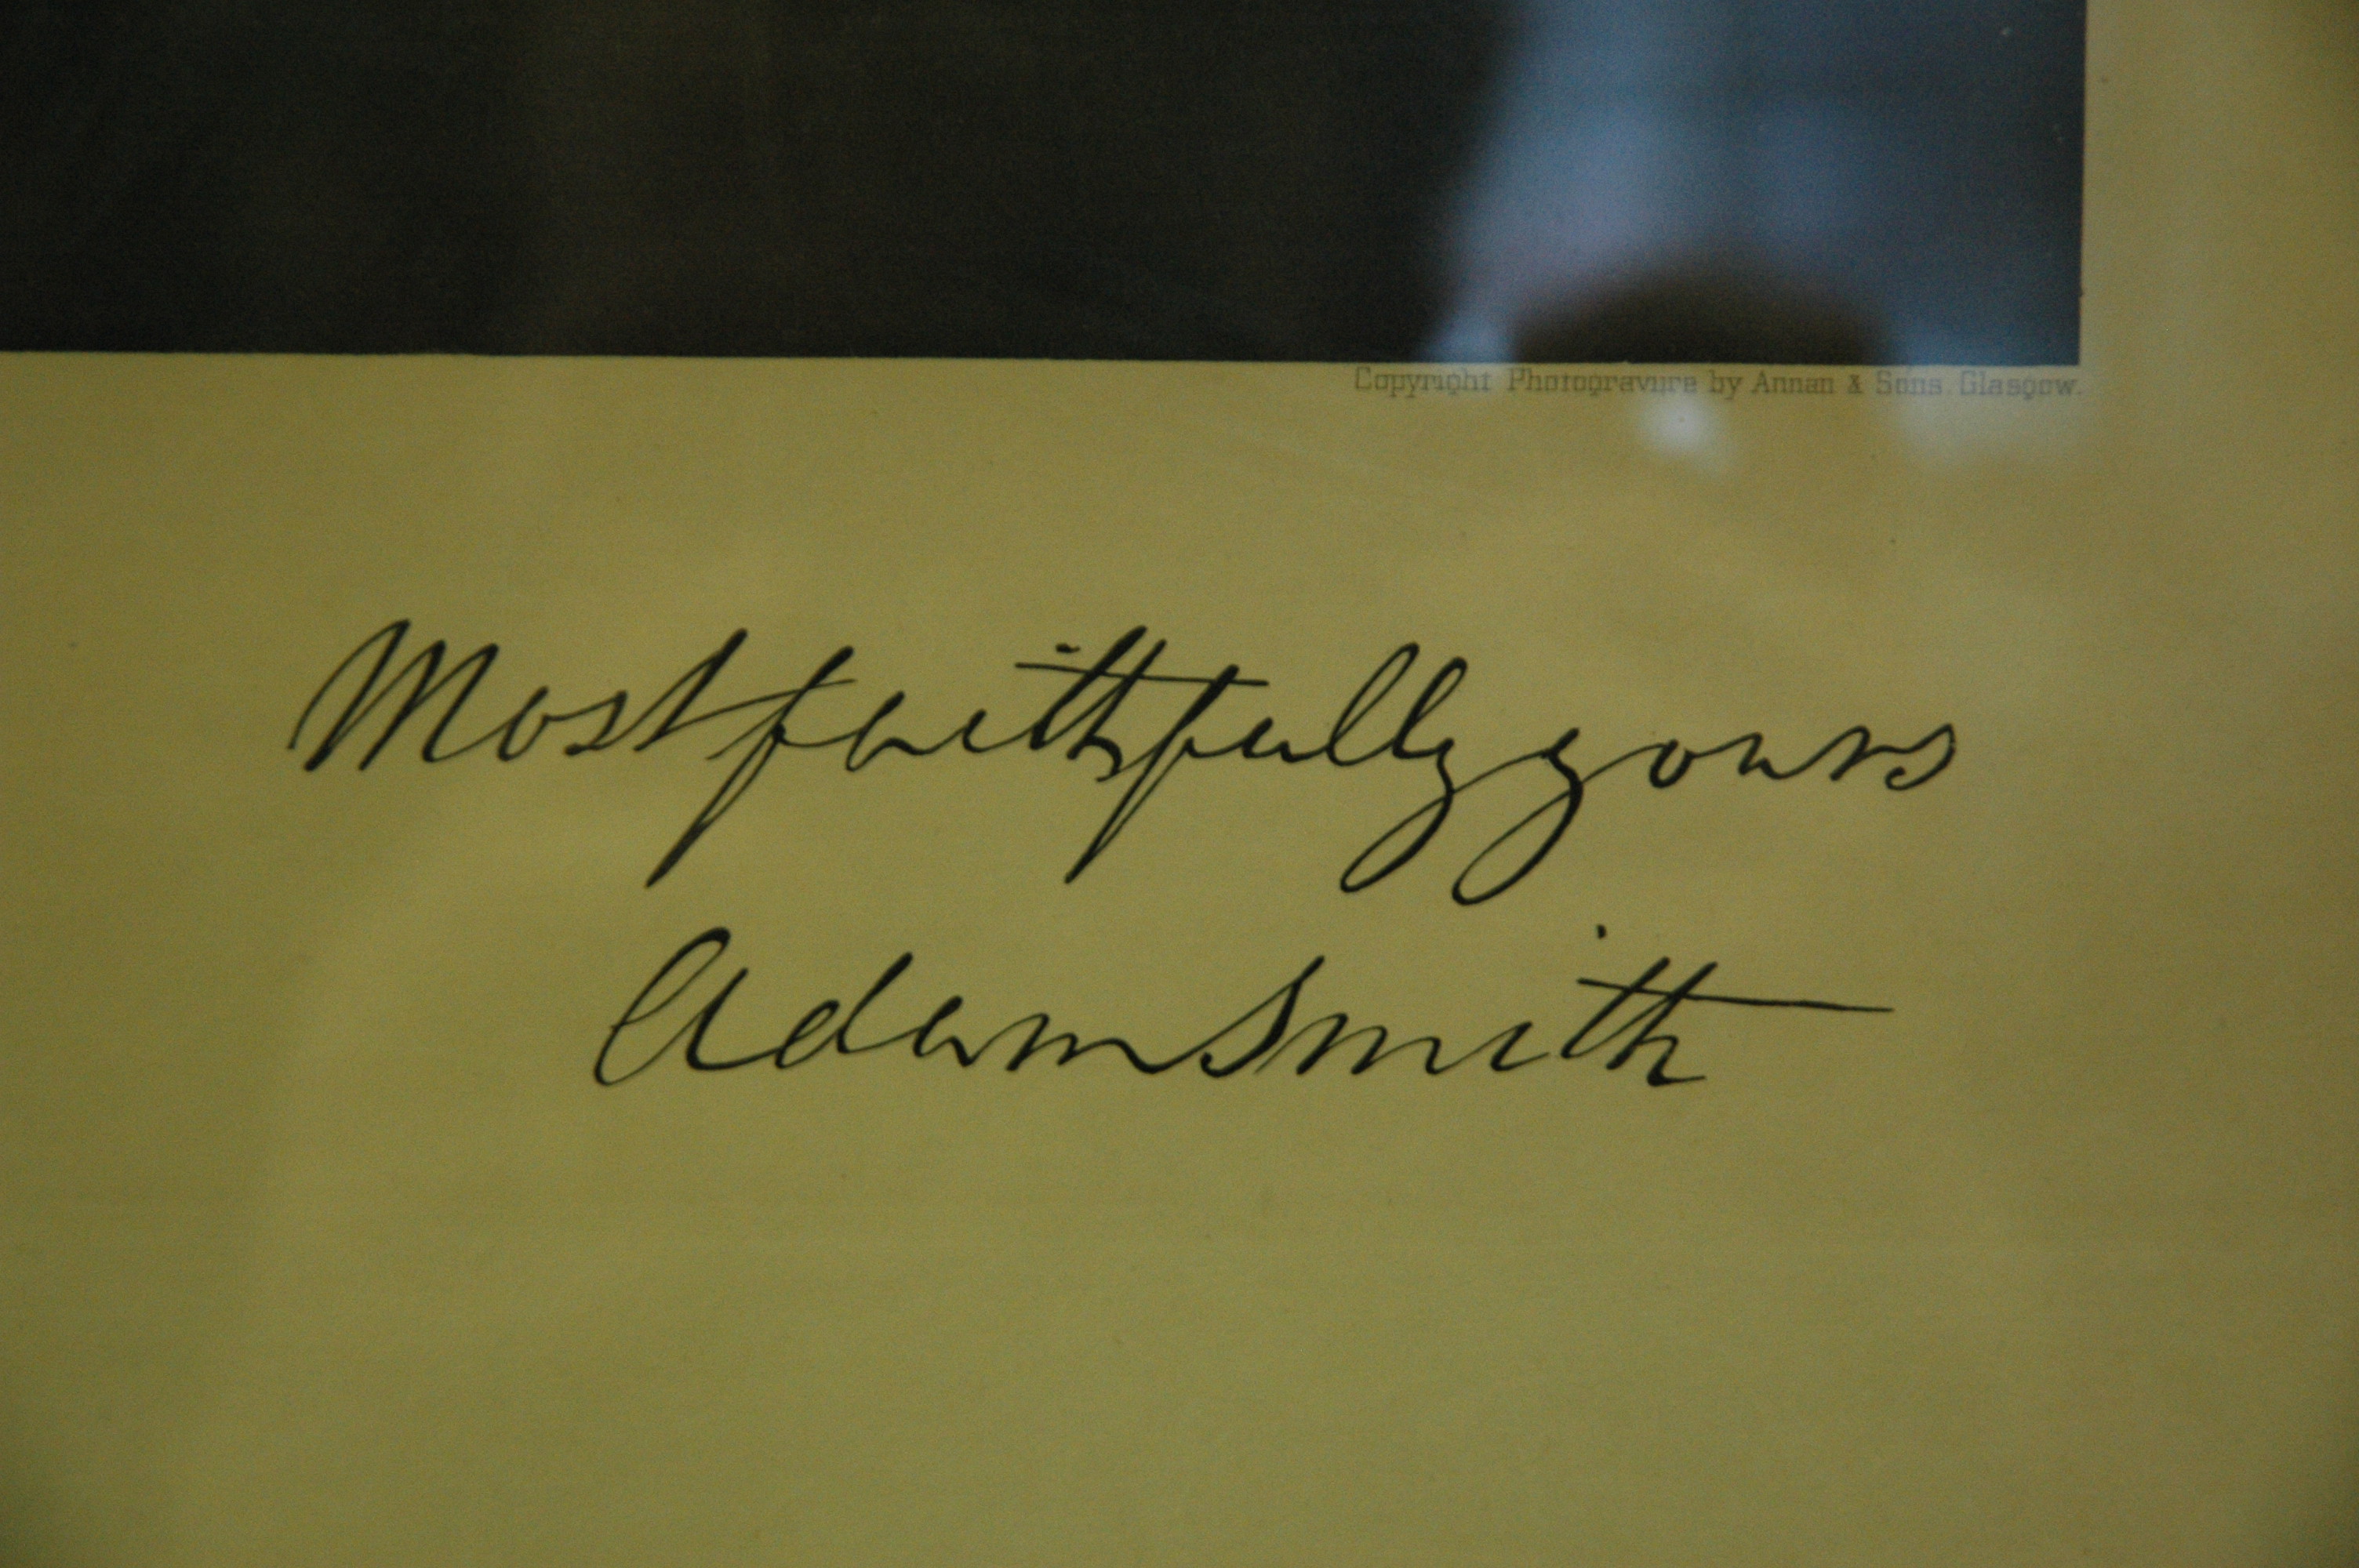 Copyright Photogravure by Annan & Sons. Glasgow.
Most faithfully yours
Adam Smith